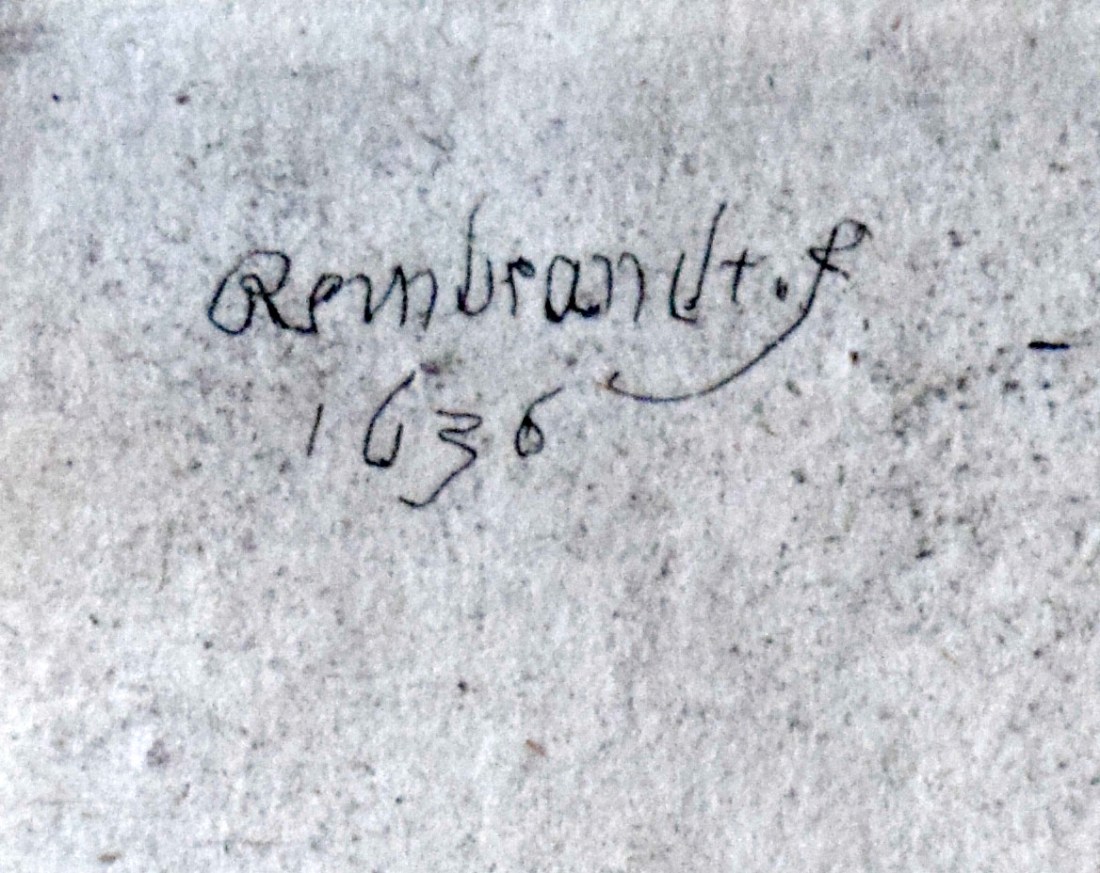 Rembrandt.f
1636